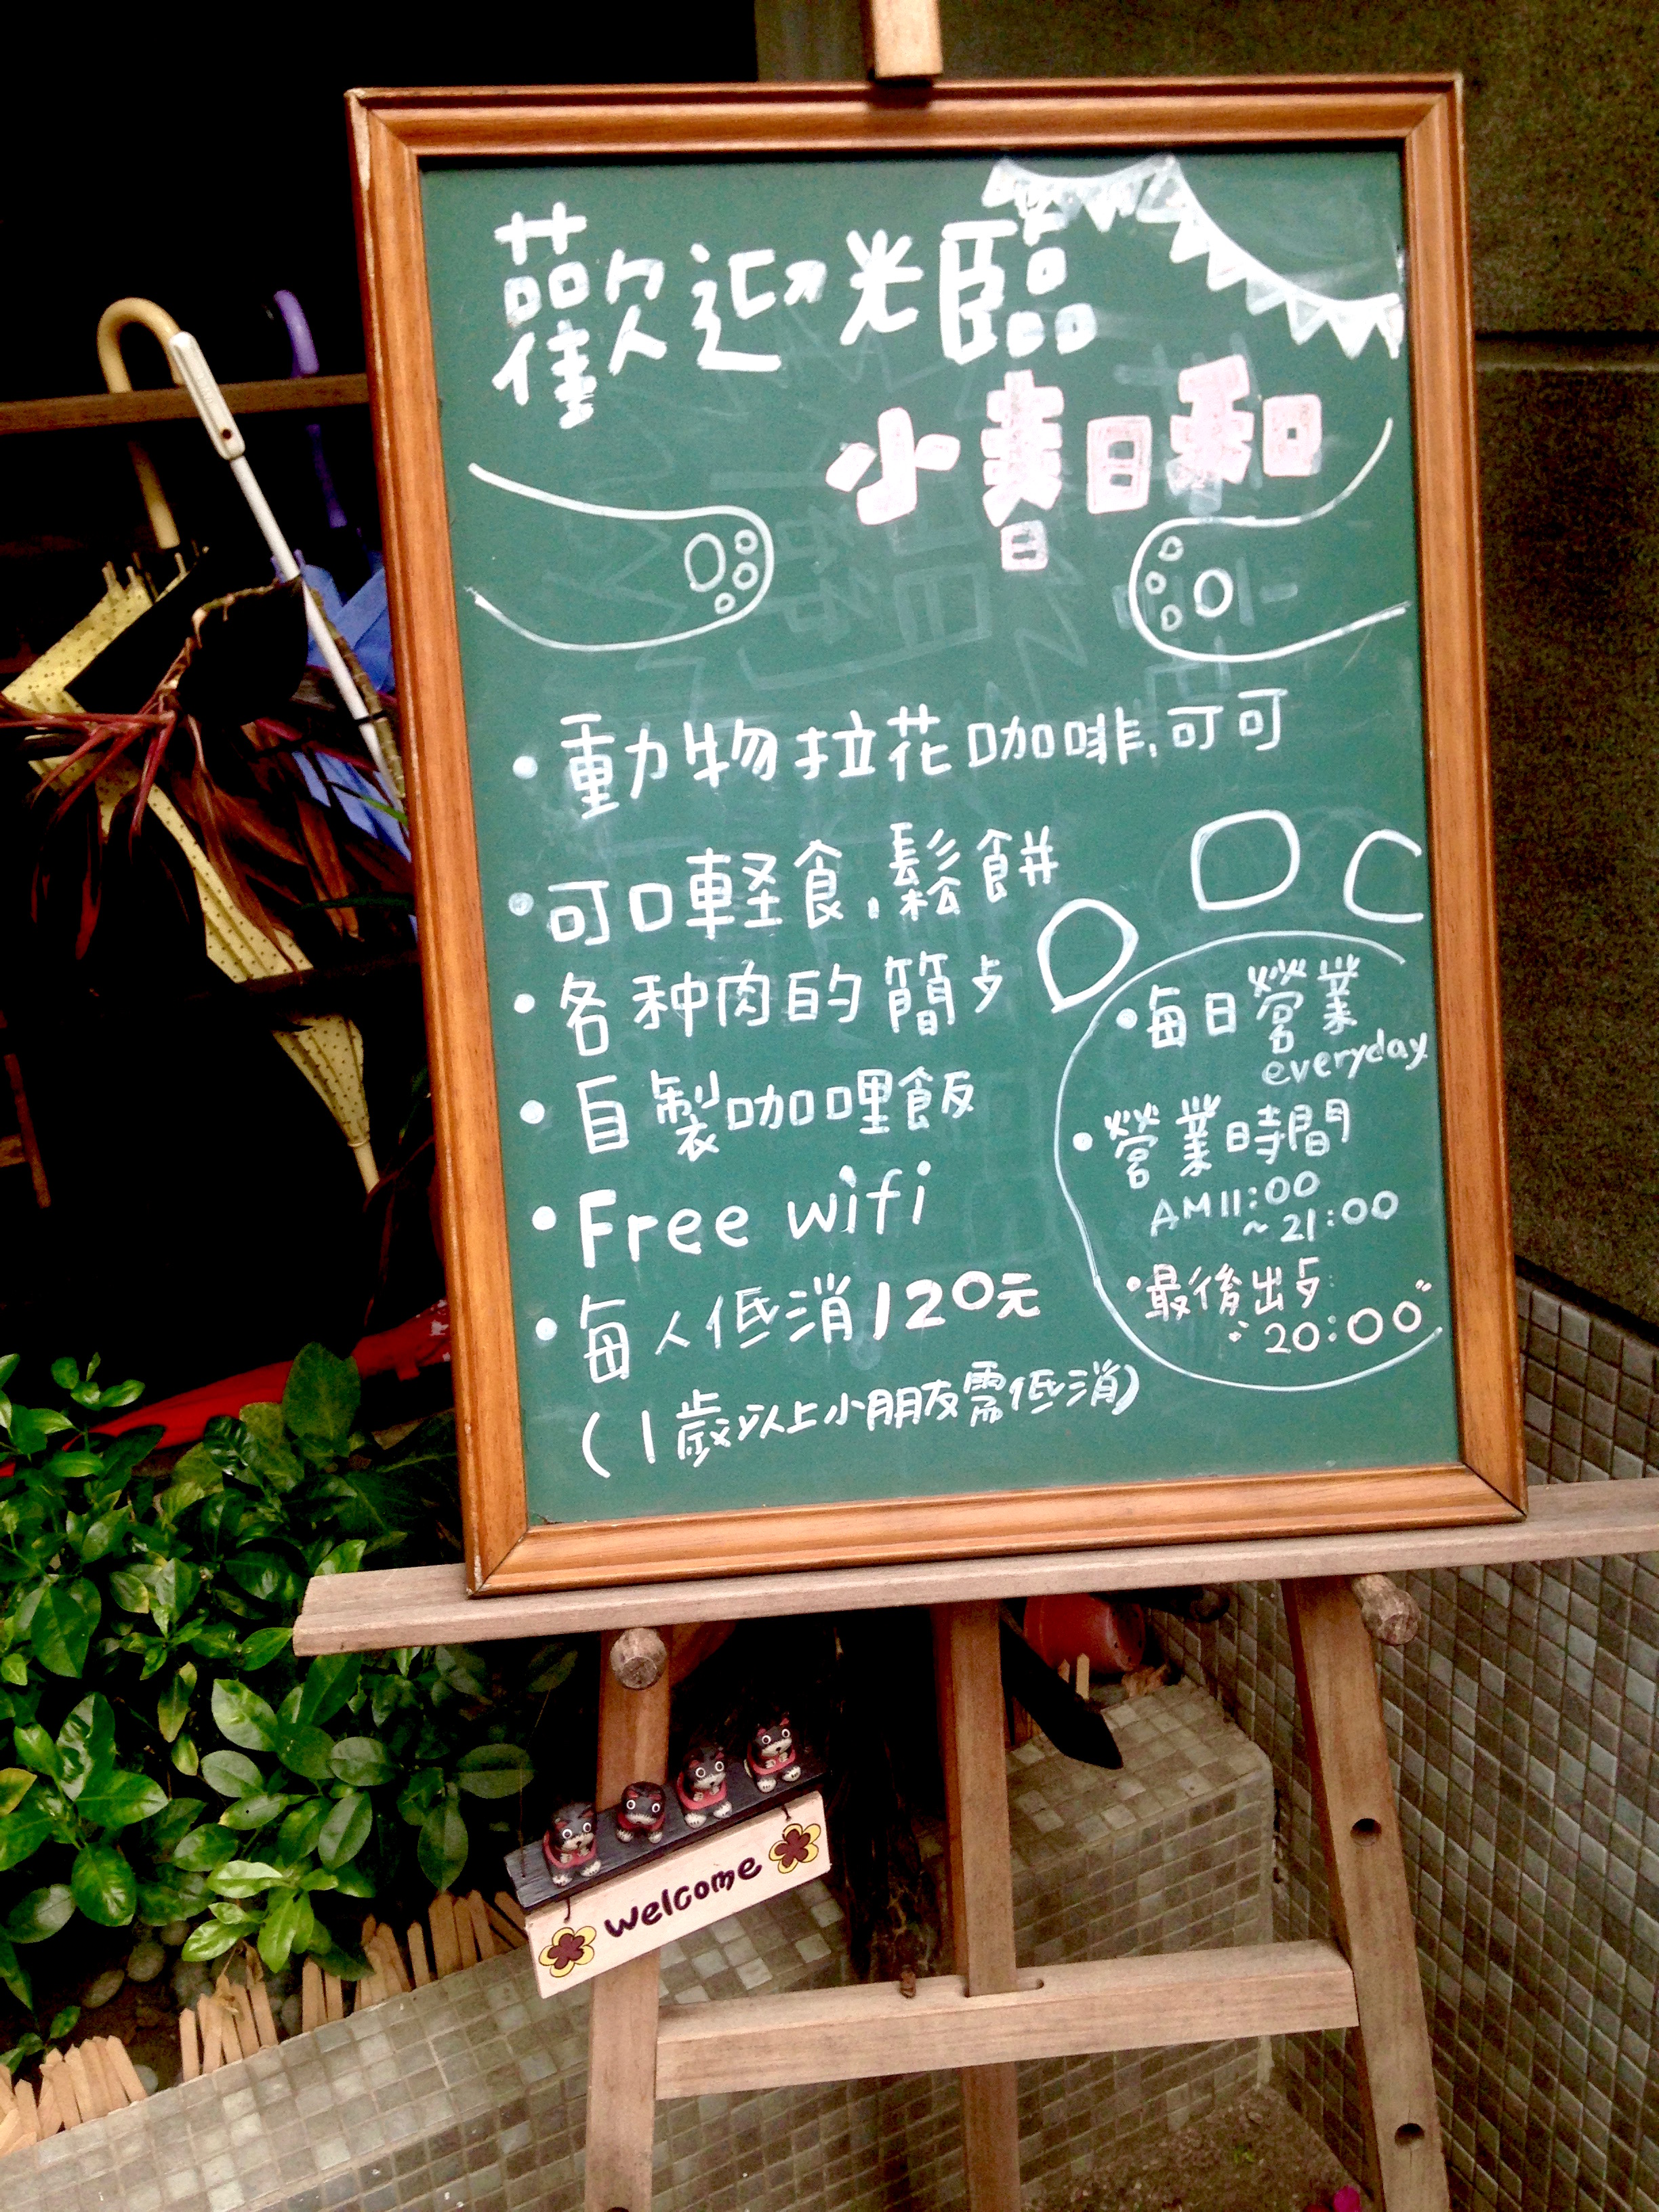 歡迎光臨
小春日和
•動物拉花咖啡,可可
•可口軽食,鬆餅
•各种肉的簡歩
•自製咖哩飯
•Free wifi
•每人低消120元
(1歲以上小朋友需低消)
•每日營業
everyday
•營業時間
AM11:00
~21:00
•最後出歩
20:00
welcome